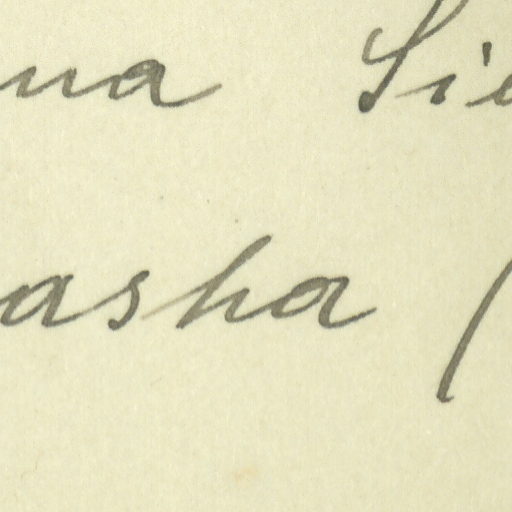 na Sie
asha (